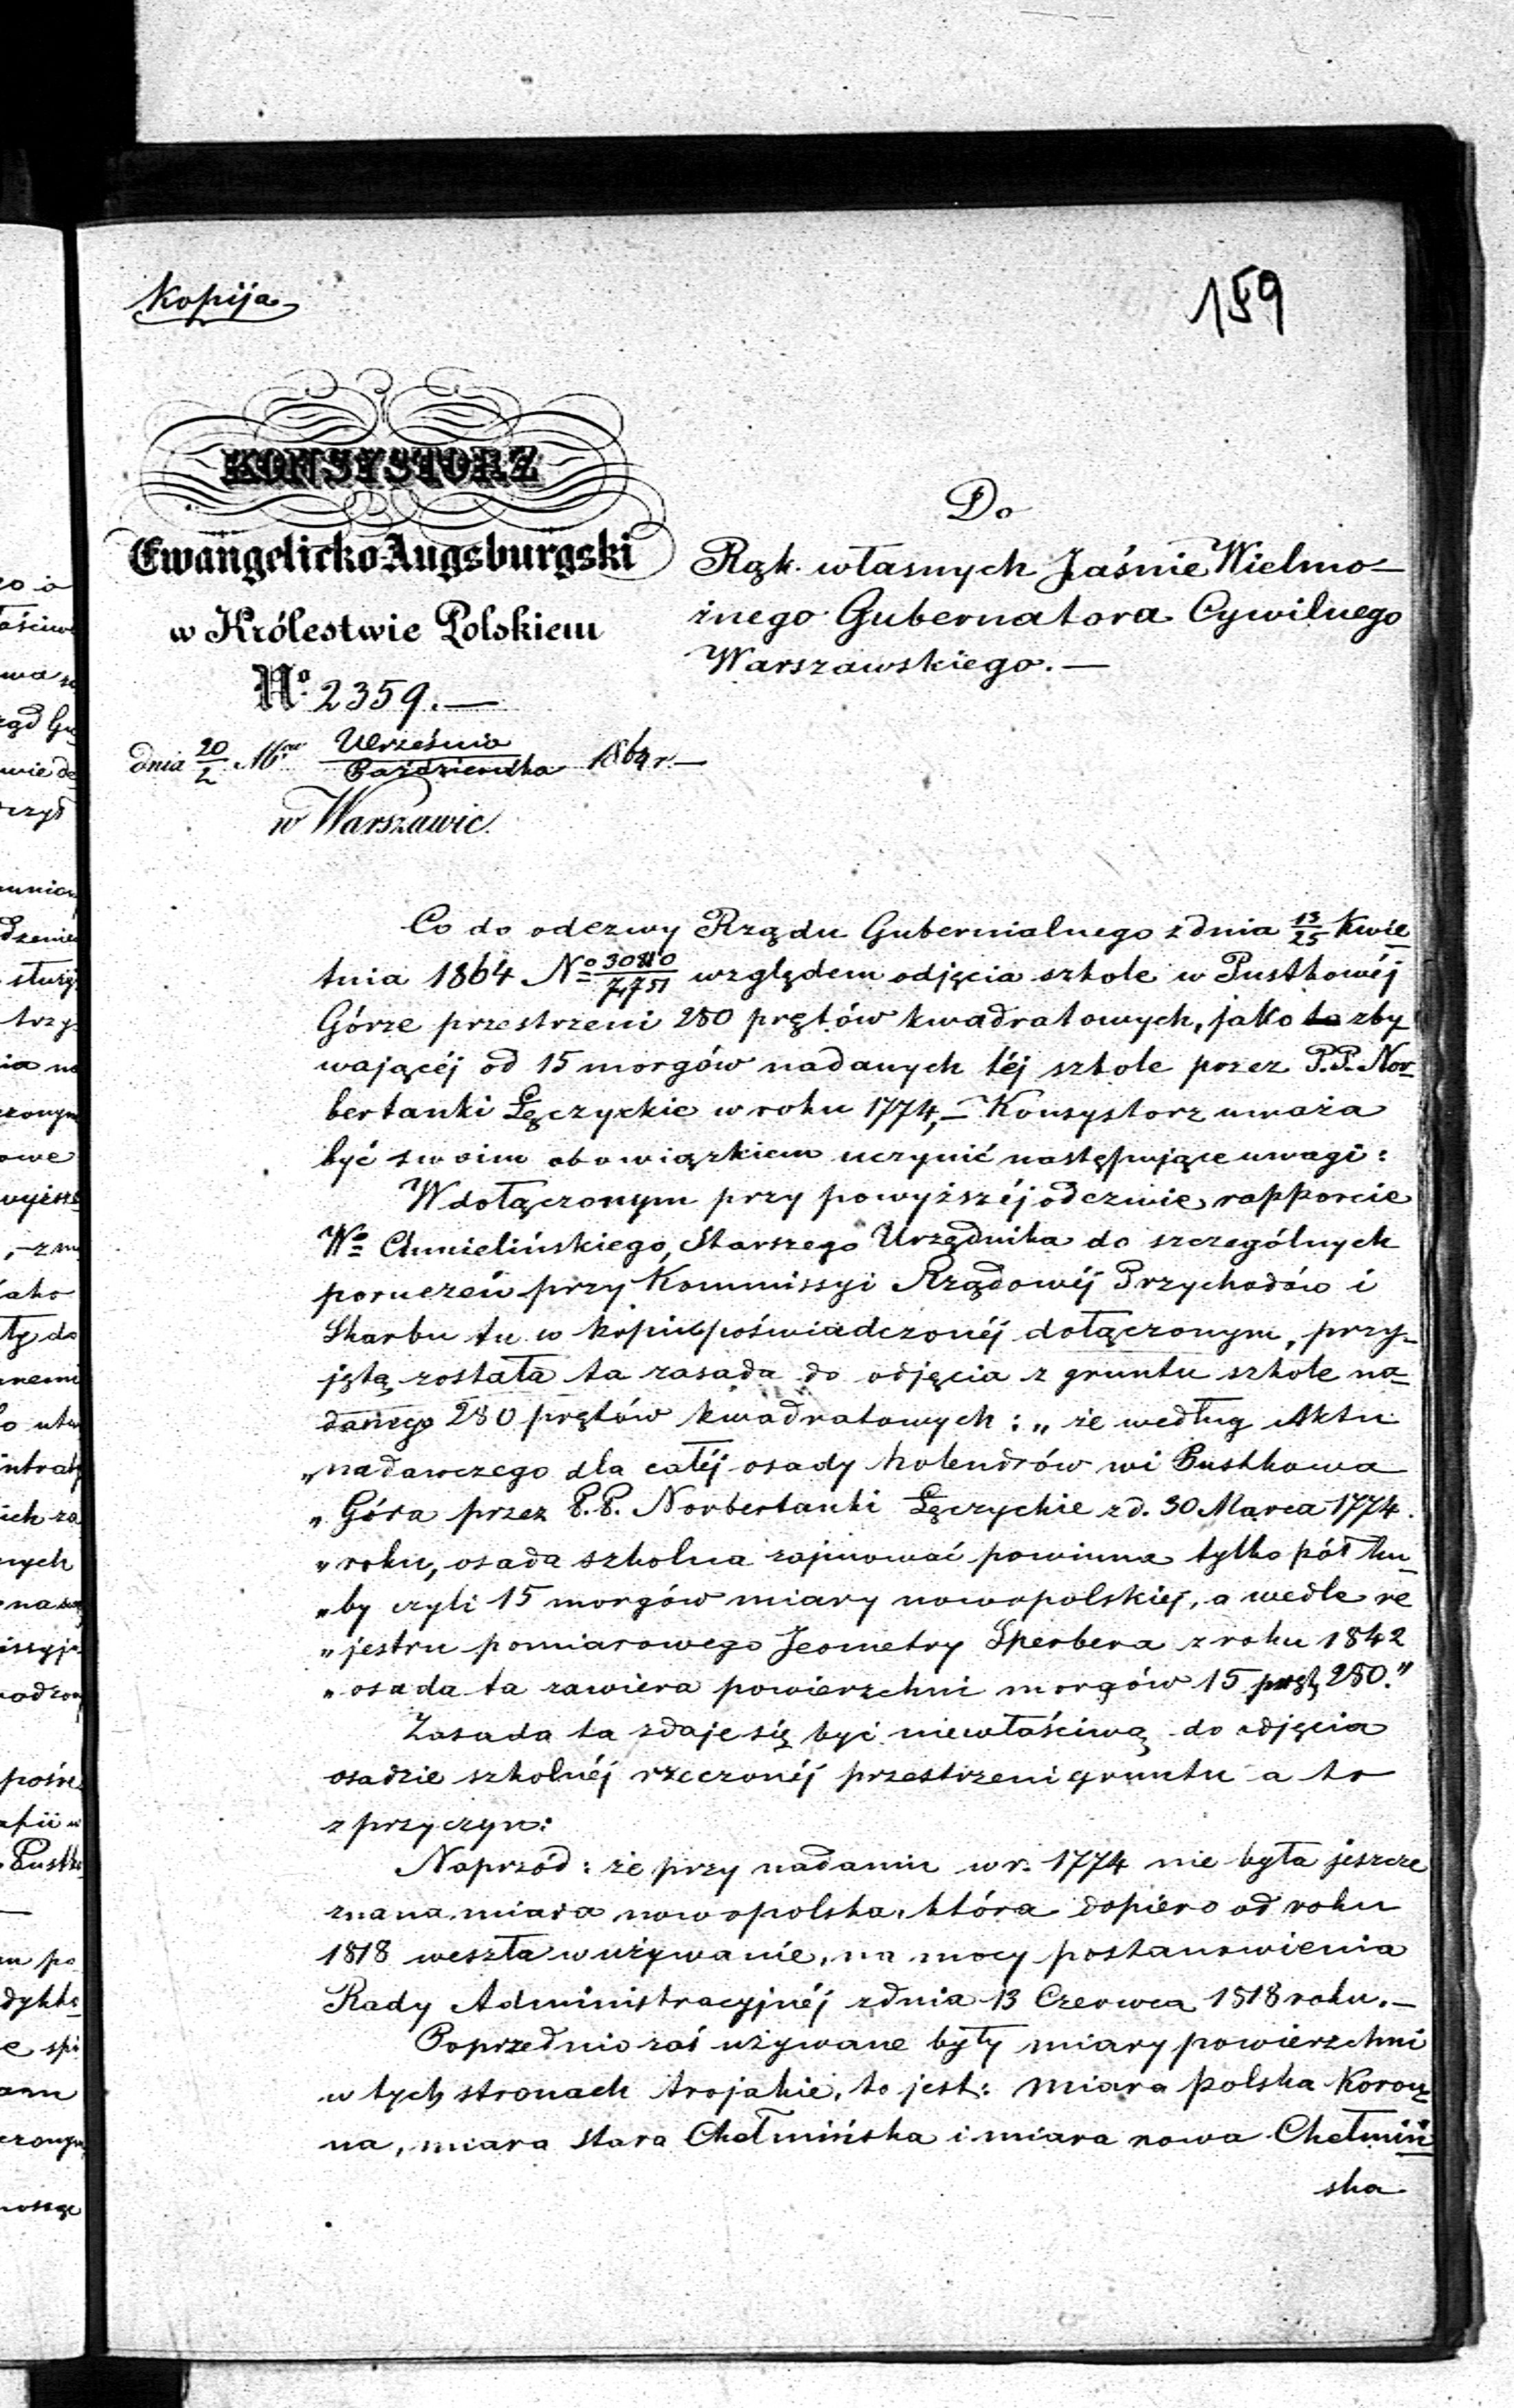 Kopija
159
KONSYSTORZ
Ewangelicko-Augsburgski
w Królestwie Polskiem
No 2359.—
dnia 20/2 Września/Października 1864 r.—
w Warszawie.
Do
Rąk własnych Jaśnie Wielmo-
żnego Gubernatora Cywilnego
Warszawskiego.—
Co do odezwy Rządu Gubernialnego z dnia 13/25 Kwie
tnia 1864 No względem odjęcia szkole w Pustkowéj
Górze przestrzeni 280 prętów kwadratowych, jako zby
wającéj od 15 morgów nadanych téj szkole przez P.P. Nor-
bertanki Łęczyckie w roku 1774,— Konsystorz uważa
być swoim obowiązkiem uczynić następujące uwagi:
W dołączonym przy powyższéj odezwie rapporcie
Wo Chmielińskiego, Starszego Urzędnika do szczególnych
poruczeń przy Kommissyi Rządowéj Przychodów i
Skarbu tu w kopii poświadczonéj dołączonym, przy-
jętą została ta zasada do odjęcia z gruntu szkole na-
danego 280 prętów kwadratowych: „że według Aktu
„nadawczego dla całéj osady holendrów wi Pustkowa
„Góra przez P.P. Norbertanki Łęczyckie z d. 30 Marca 1774.
„roku, osada szkolna zajmować powinna tylko pół hu-
„by czyli 15 morgów miary nowopolskiej, a wedle re
„jestru pomiarowego Jeometry Sperbera z roku 1842
„osada ta zawiera powierzchni morgów 15 pręt. 280."
Zasada ta zdaje się być niewłaściwą do odjęcia
osadzie szkolnéj rzeczonéj przestrzeni gruntu a to
z przyczyn:
Naprzód: że przy nadaniu w r. 1774 nie była jeszcze
znana miara nowopolska, która dopiéro od roku
1818 weszła w używanie, na mocy postanowienia
Rady Administracyjnéj z dnia 13 Czerwca 1818 roku.—
Poprzednio zaś używane były miary powierzchni
w tych stronach trojakie, to jest: miara polska Koron-
na, miara stara Chełmińska i miara nowa Chełmiń
ska